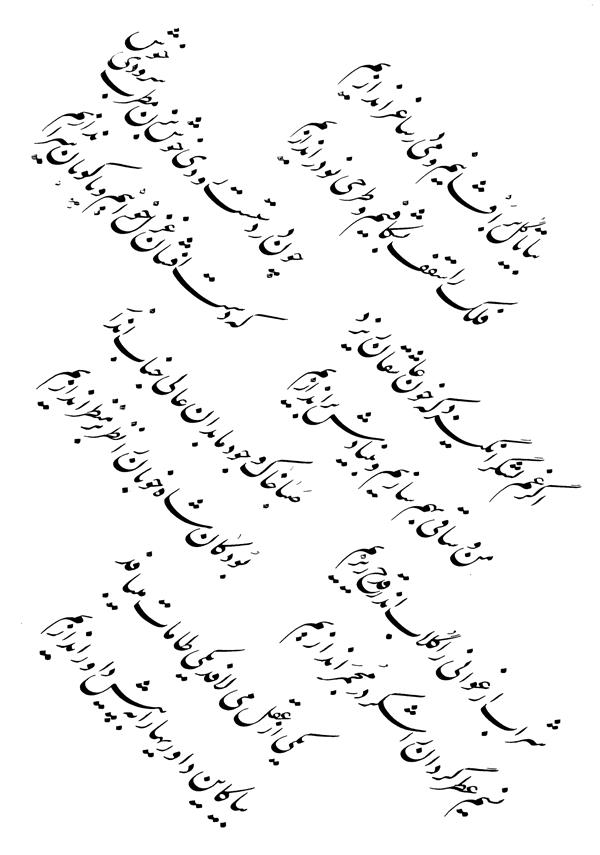 بیا تا گل برافشانیم و می در ساغر اندازیم
فلک را سقف بشکافیم و طرحی نو دراندازیم
چون در دستت رودی خوش بزن مطرب سرودی خوش
که دست افشان غزل خوانیم و پاکوبان سر اندازیم
اگر غم لشکر انگیزد که خون عاشقان ریزد
من و ساقی بهم سازیم و بنیادش براندازیم
صبا خاک وجود ما بدان عالی جناب انداز
بود کان شاه خوبان را نظر بر منظر اندازیم
شراب ارغوانی را گلاب اندر قدح ریزیم
نسیم عطر گردان را شکر در مجمر اندازیم
یکی از عقل می لافد یکی طامات می بافد
بیا کاین داوریها را به پیش داور اندازیم